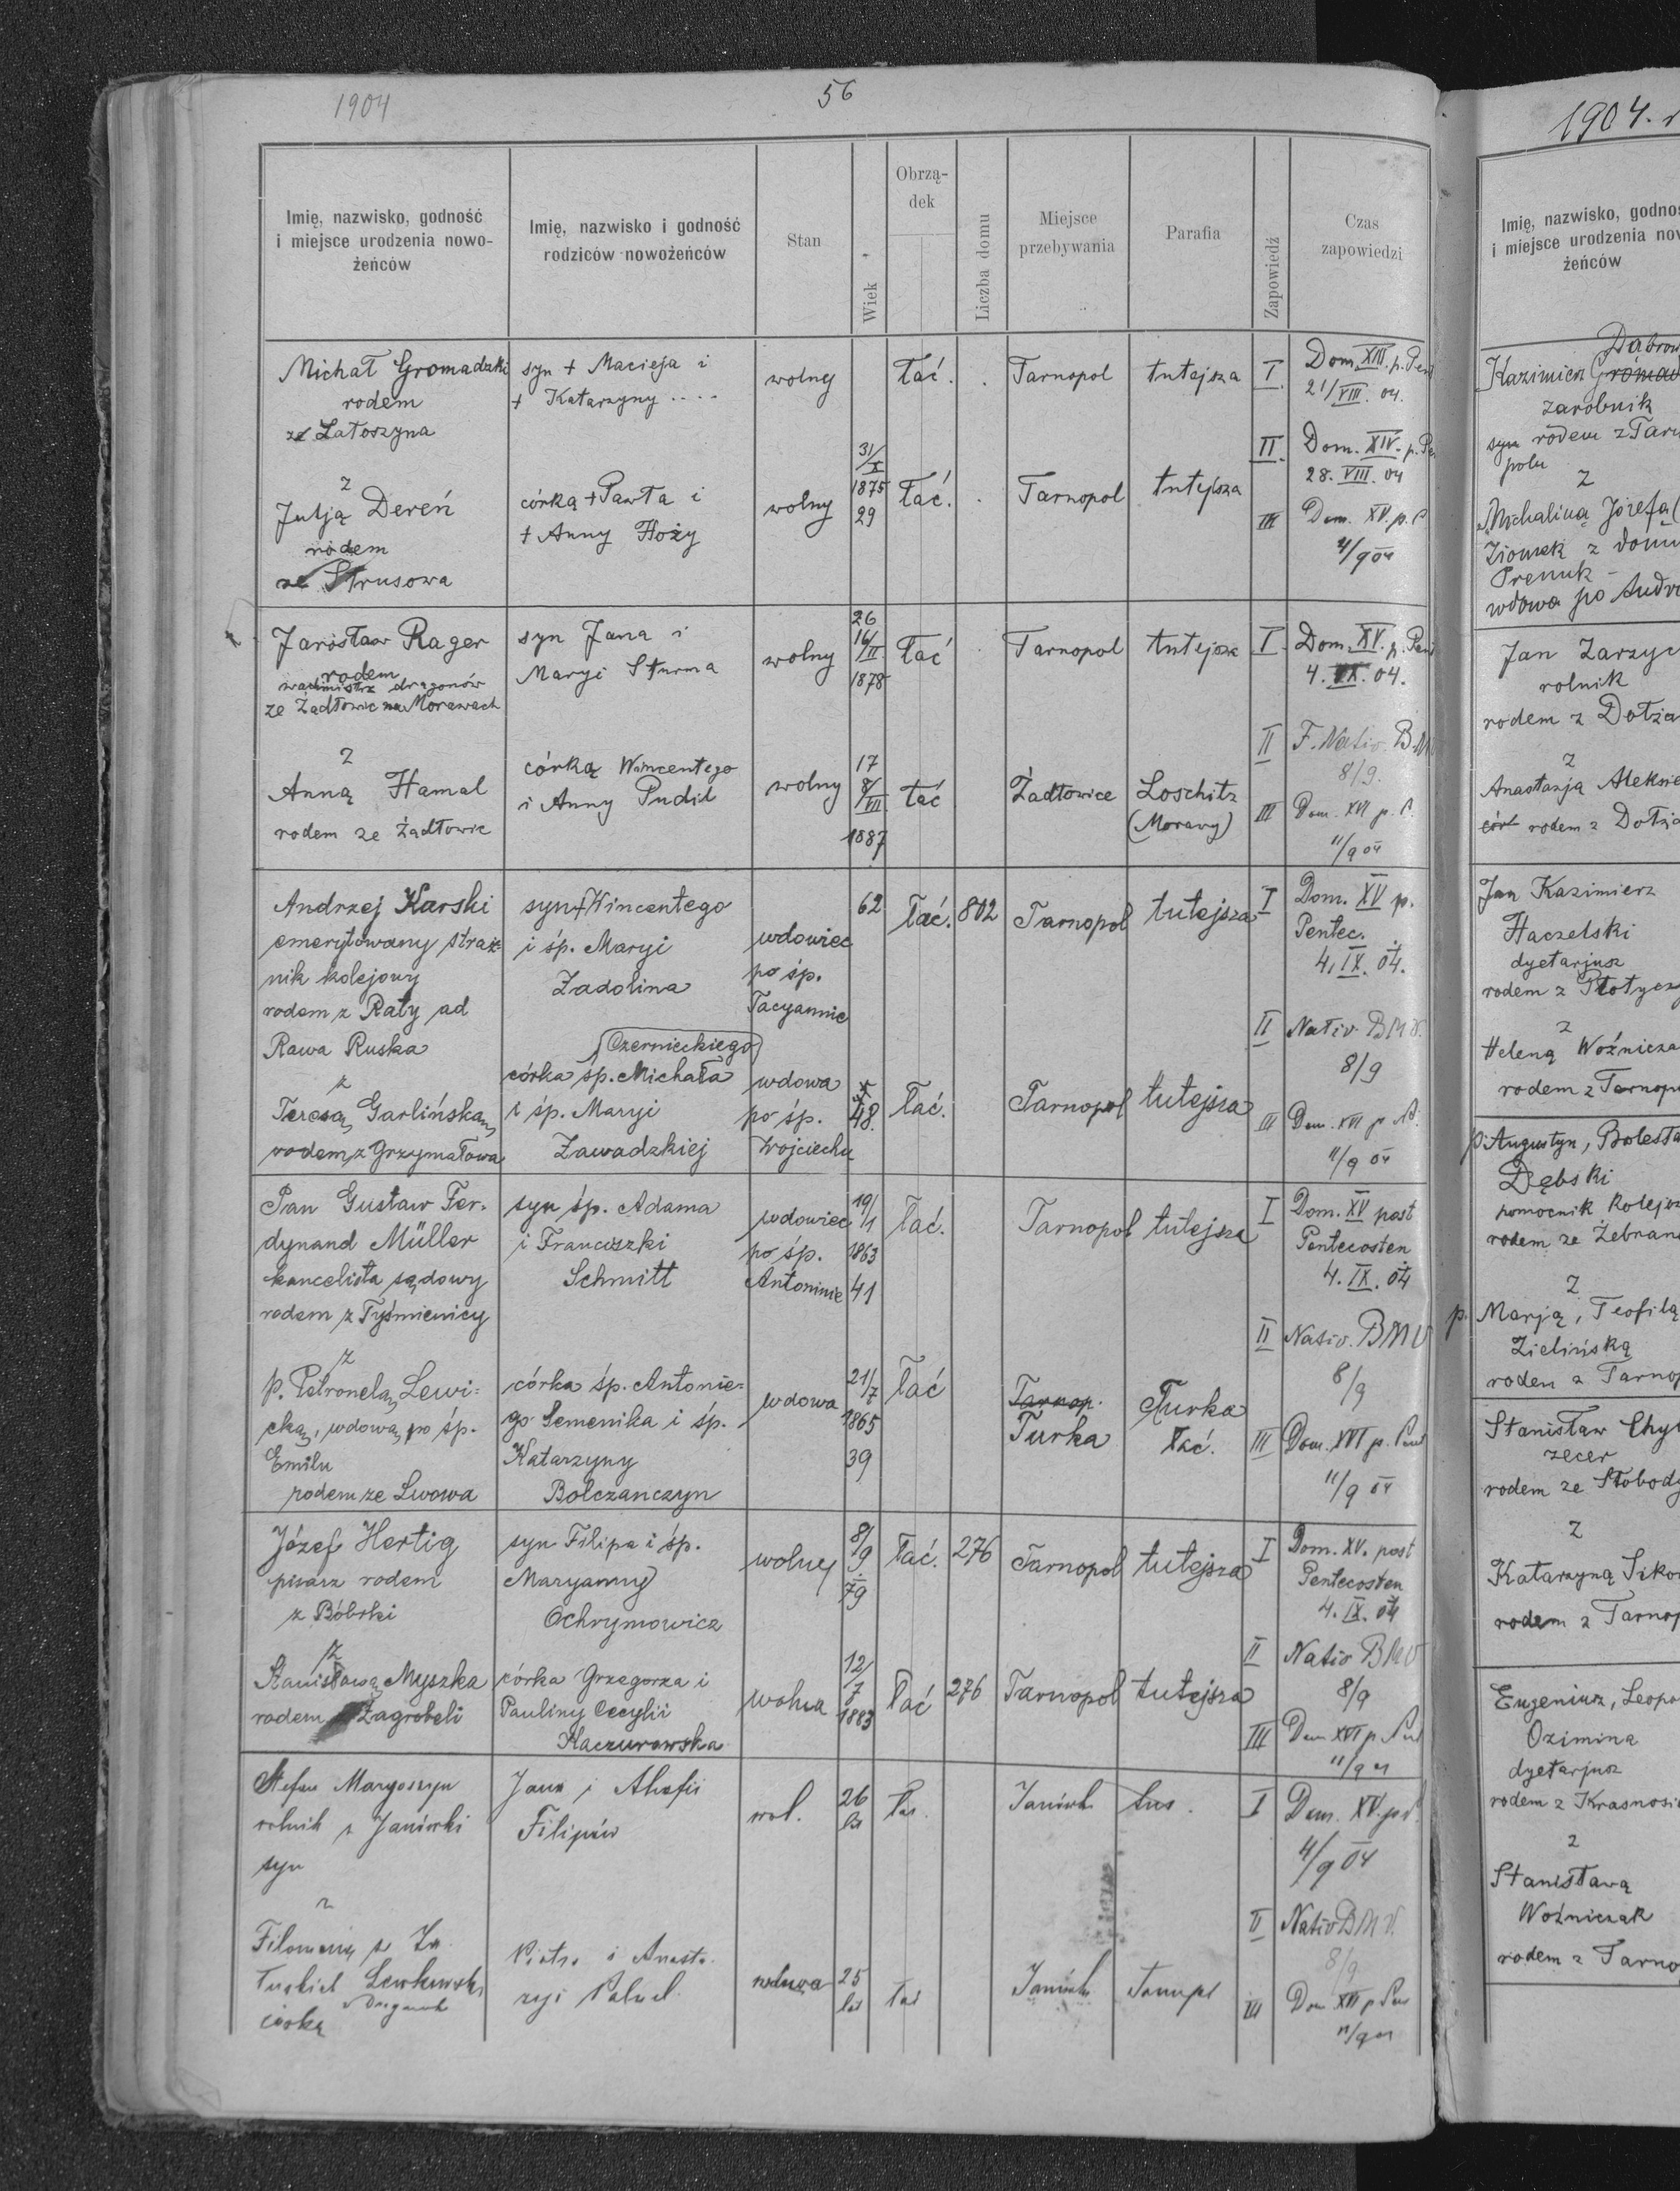 1904
56
Imię, nazwisko, godność
i miejsce urodzenia nowo-
żeńców
Imię, nazwisko i godność
rodziców nowożeńców
Stan
Wiek
Obrzą-
dek
Liczba domu
Miejsce
przebywania
Parafia
Zapowiedź
Czas
zapowiedzi
Michał Gromadzki
rodem
ze Latoszyna
syn + Macieja i
+ Katarzyny ....
wolny
łać.
Tarnopol
tutejsza
I
Dom. XIII. p. Pent
21/VIII. 04.
II.
Dom. XIV. p. Pen
28. VIII. 04
III
Dom. XV. p. P
4/9 04
z
Julją Dereń
rodem
ze Strusowa
córką + Pawła i
+ Anny Hoży
wolny
31/X
1875
29
łać.
Tarnopol
tutejsza
Jarosław Rager
rodem
wachmistrz dragonów
ze Żadłowic na Morawach
syn Jana i
Maryi Sturma
wolny
26
16/II
1878
łać
Tarnopol
tutejsza
I
Dom. XV. p. Pent
4. IX. 04.
II
F. Nativ. B.M
8/9.
III
Dom. XVI p. P.
11/9 04
z
Anną Hamal
rodem ze Żadłowic
córką Wincentego
i Anny Pudil
wolny
17
8/VII
1887
łać
Żadłowice
Loschitz
(Moravy)
Andrzej Karski
emerytowany straż-
nik kolejowy
rodem z Raty ad
Rawa Ruska
syn + Wincentego
i śp. Maryi
Zadolina
wdowiec
po śp.
Tacyannie
62
łać.
802
Tarnopol
tutejsza
I
Dom. XV p.
Pentec.
4. IX. 04.
II
Nativ. BMV.
8/9
III
Dom. XVI p. P.
11/9 04
z
Teresą Garlińską
rodem z Grzymałowa
Czernieckiego
córka śp. Michała
i śp. Maryi
Zawadzkiej
wdowa
po śp.
Wojciechu
48.
łać.
Tarnopol
tutejsza
Pan Gustaw Fer-
dynand Müller
kancelista sądowy
rodem z Tyśmienicy
syn śp. Adama
i Franciszki
Schmitt
wdowiec
po śp.
Antoninie
19/1
1863
41
łać.
Tarnopol
tutejsza
I
Dom. XV post
Pentecosten
4. IX. 04
II
Nativ. BMV
8/9
III
Dom. XVI p. Pent
11/9 04
z
p. Petronelą Lewi-
cką, wdową po śp.
Emilu
rodem ze Lwowa
córka śp. Antonie-
go Semenika i śp.
Katarzyny
Bolczanczyn
wdowa
21/7
1865
39
łać
Tarnop.
Turka
Turka
łać.
Józef Hertig
pisarz rodem
z Bóbrki
syn Filipa i śp.
Maryanny
Ochrymowicz
wolny
8/9
79
łać.
276
Tarnopol
tutejsza
I
Dom. XV. post
Pentecosten
4. IX. 04
II
Nativ BMV
8/9
III
Dom XVI p. Pent
11/9 04
z
Stanisławą Myszka
rodem z Zagrobeli
córka Grzegorza i
Pauliny Cecylii
Kaczurowska
wolna
12/7
1883
łać
276
Tarnopol
tutejsza
Stefan Maryoszyn
rolnik z Janówki
syn
Jana i
Filipów
wol.
26
lat
łac.
Janówk
tus.
I
Dom. XV. p. P.
4/9 04
II
Nativ BMV.
8/9
III
Dom XVI p Pen
11/9 04
z
Filomeną
Lewkowsk
córką
Piotra i Anasta-
zyi
wolna
25
lat
łać
Janówk
Tarnopl
1904. r
Imię, nazwisko, godnoś
i miejsce urodzenia now
żeńców
Dąbrow
Kazimierz Gromad
zarobnik
syn rodem z Tarn
polu
z
Michaliną Józefą (
Ziomek z domu
Prenuk -
wdowa po Andr
Jan Zarzyc
rolnik
rodem z Dołża
z
Anastazją Aleksie
córk rodem z Dołża
Jan Kazimierz
Haczelski
dyetarjusz
rodem z Płotycz
z
Heleną Woźnicza
rodem z Tarnop
p. Augustyn, Bolesła
Dębski
pomocnik kolejow
rodem ze Żebran
z
p. Marją, Teofilą
Zielińską
rodem z Tarnop
Stanisław Chy
zecer
rodem ze Słobody
z
Katarzyną Siko
rodem z Tarnop
Eugeniusz, Leopo
Ozimina
dyetarjusz
rodem z Krasnosi
z
Stanisławą
Woźniczak
rodem z Tarno